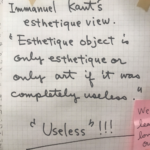 Immanuel Kant's
esthetique view.
" Esthetique object is
only esthetique or
only art if it was
completely useless "
" Useless " !!!
We